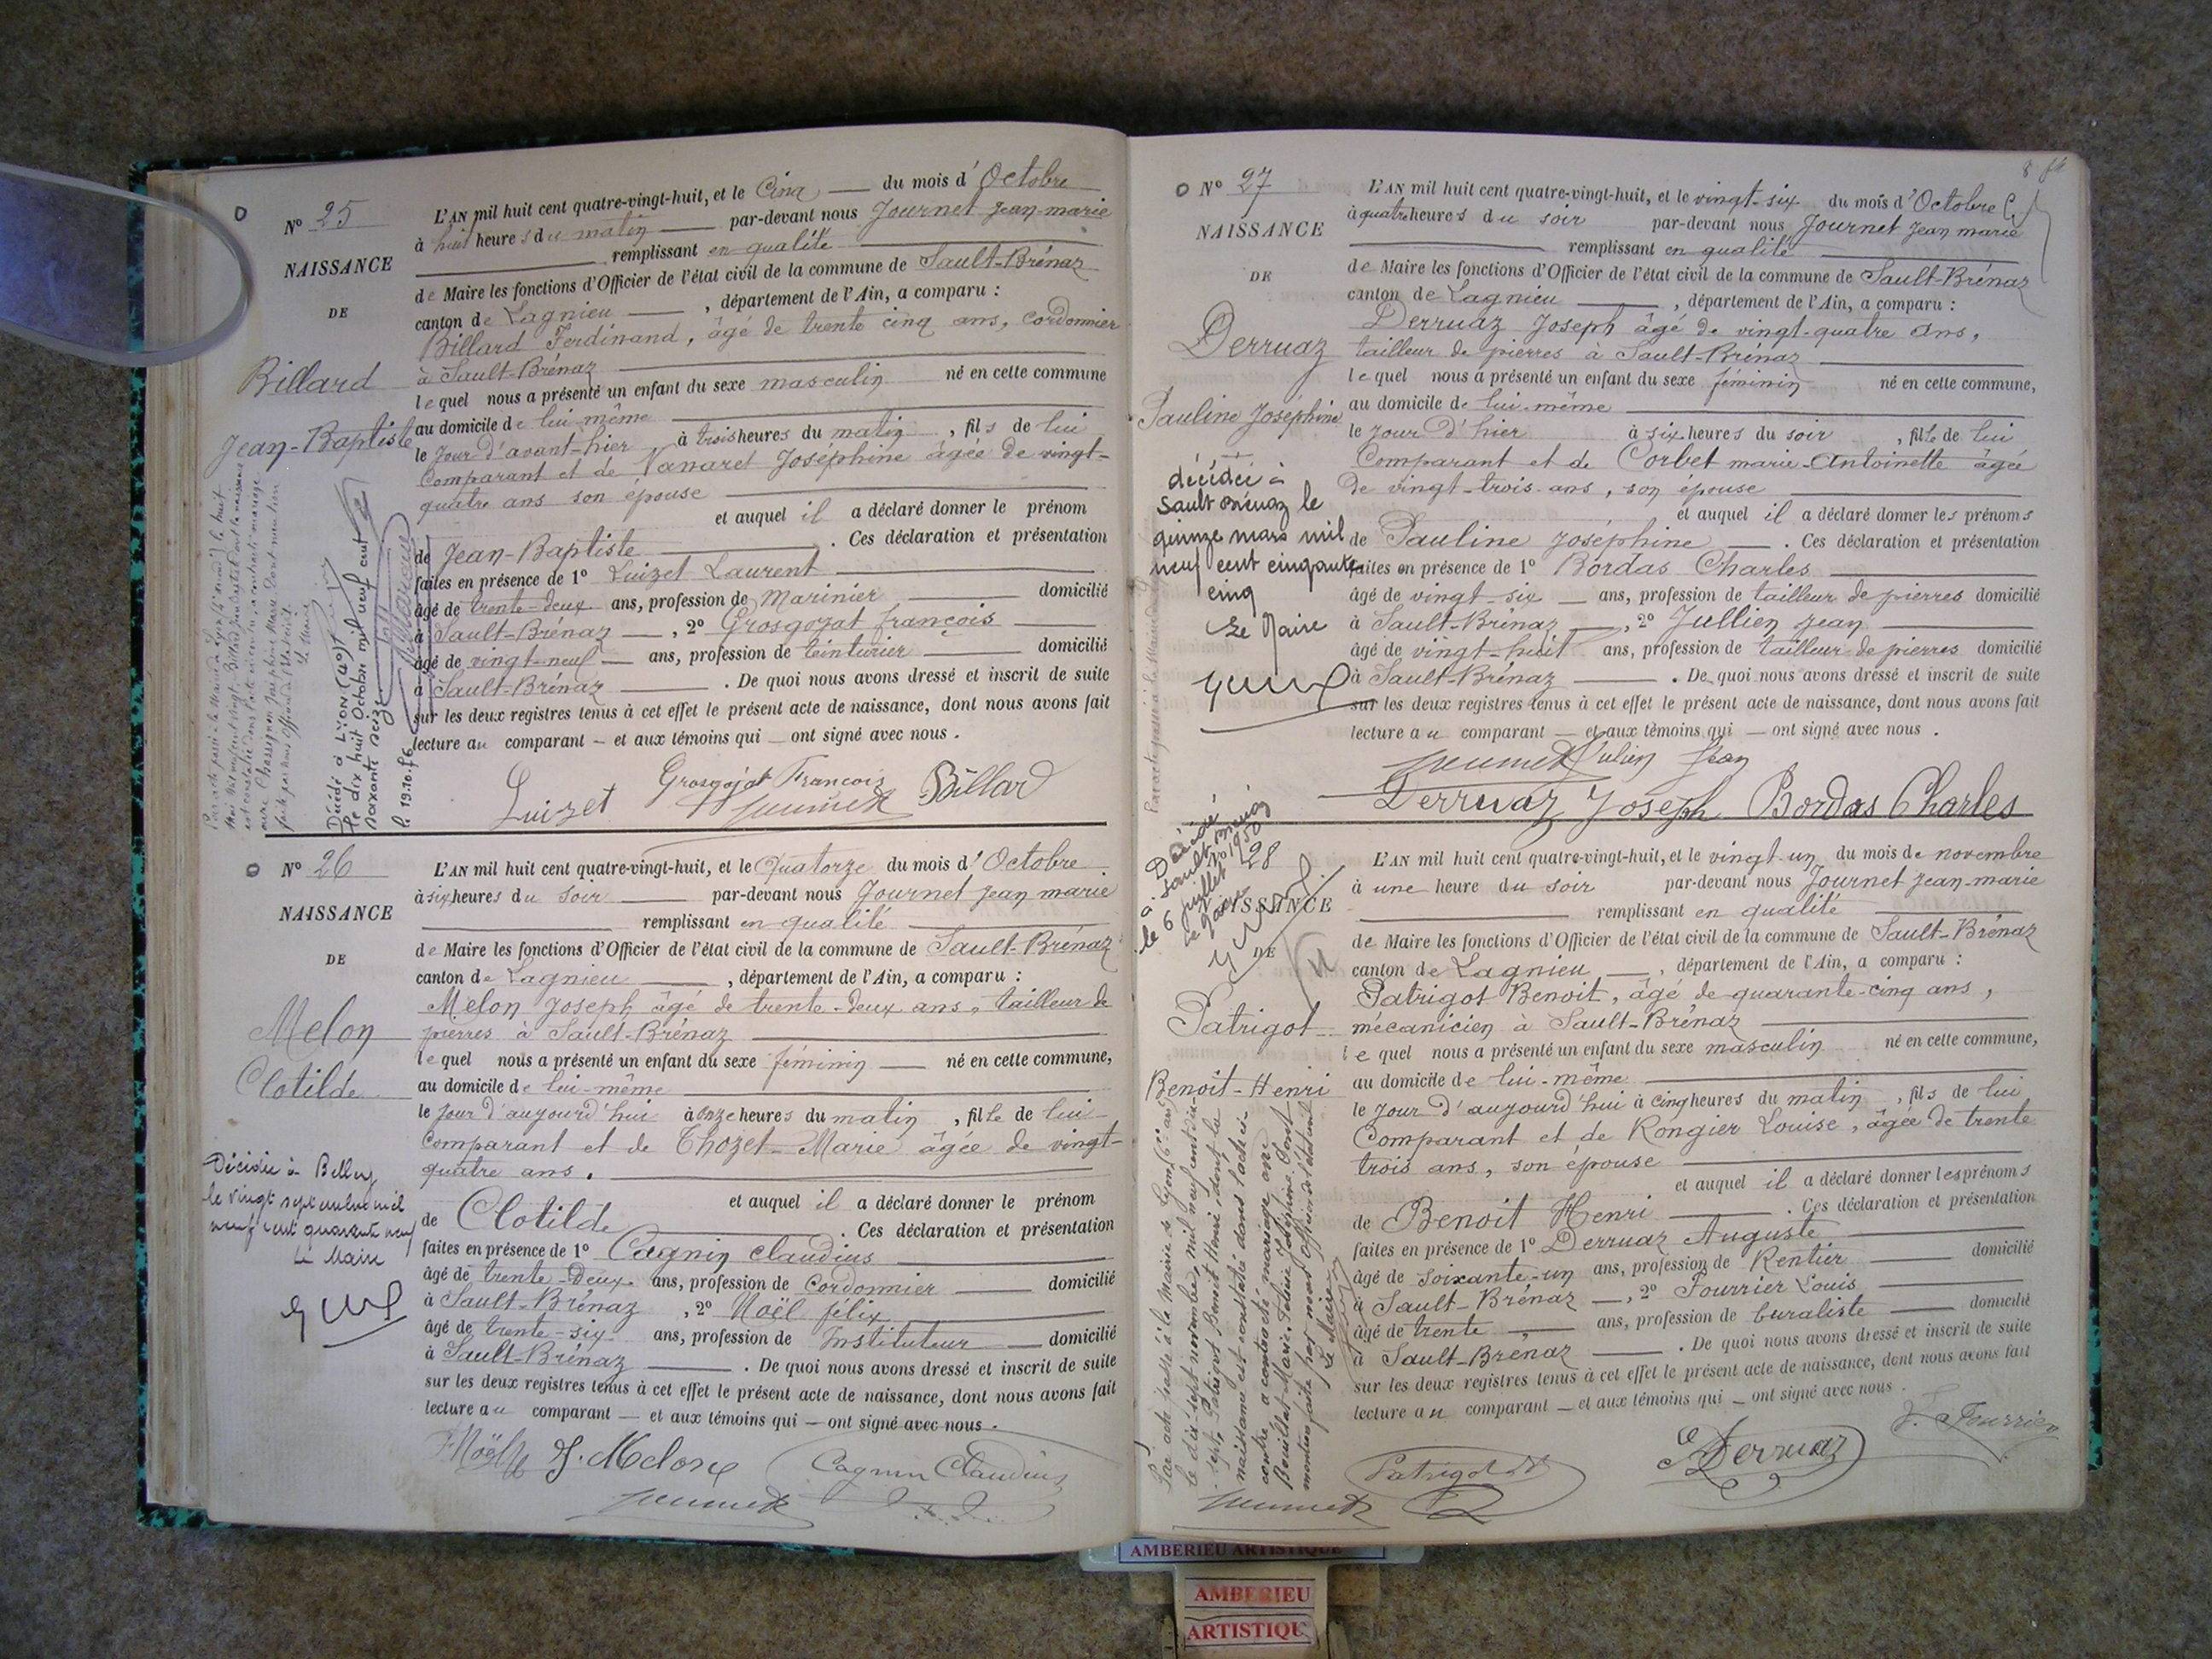 Nº 25
NAISSANCE
DE
Billard
Jean-Baptiste
L'AN mil huit cent quatre-vingt-huit, et le Cinq du mois d'Octobre
à huit heures du matin par-devant nous Journet Jean-marie
remplissant en qualité
de Maire les fonctions d'Officier de l'état civil de la commune de Sault-Brénaz
canton de Lagnieu, département de l'Ain, a comparu :
Billard Ferdinand, âgé de trente cinq ans, cordonnier
à Sault-Brénaz
lequel nous a présenté un enfant du sexe masculin né en cette commune
au domicile de lui-même
le jour d'avant-hier à trois heures du matin, fils de lui
Comparant et de Joséphine âgée de vingt-
quatre ans son épouse
et auquel il a déclaré donner le prénom
de Jean-Baptiste. Ces déclaration et présentation
faites en présence de 1º Luizet Laurent
âgé de trente-deux ans, profession de Marinier domicilié
à Sault-Brénaz, 2º Grosgojat françois
âgé de vingt-neuf ans, profession de teinturier domicilié
à Sault-Brénaz. De quoi nous avons dressé et inscrit de suite
sur les deux registres tenus à cet effet le présent acte de naissance, dont nous avons fait
lecture au comparant — et aux témoins qui — ont signé avec nous.
Décédé à LYON (2º)
le dix huit Octobre mil neuf cent
soixante seize
le 19.10.76
Luizet Grosgojat François Billard
Nº 26
NAISSANCE
DE
Melon
Clotilde
L'AN mil huit cent quatre-vingt-huit, et le Quatorze du mois d'Octobre
à six heures du soir par-devant nous Journet Jean marie
remplissant en qualité
de Maire les fonctions d'Officier de l'état civil de la commune de Sault-Brénaz
canton de Lagnieu, département de l'Ain, a comparu :
Melon Joseph âgé de trente-deux ans, tailleur de
pierres à Sault-Brénaz
lequel nous a présenté un enfant du sexe féminin né en cette commune,
au domicile de lui-même
le jour d'aujourd'hui à onze heures du matin, fille de lui
Comparant et de Thozet Marie âgée de vingt-
quatre ans.
et auquel il a déclaré donner le prénom
de Clotilde. Ces déclaration et présentation
faites en présence de 1º Cagnin Claudius
âgé de trente-Deux ans, profession de Cordonnier domicilié
à Sault-Brénaz, 2º Noël félix
âgé de trente-six ans, profession de Instituteur domicilié
à Sault-Brénaz. De quoi nous avons dressé et inscrit de suite
sur les deux registres tenus à cet effet le présent acte de naissance, dont nous avons fait
lecture au comparant — et aux témoins qui — ont signé avec nous.
Décédée à Belley
le vingt septembre mil
neuf cent quarante neuf
Le Maire
F. Noël J. Melon Cagnin Claudius
Nº 27
NAISSANCE
DE
Derruaz
Pauline Joséphine
L'AN mil huit cent quatre-vingt-huit, et le vingt-six du mois d'Octobre
à quatre heures du soir par-devant nous Journet Jean marie
remplissant en qualité
de Maire les fonctions d'Officier de l'état civil de la commune de Sault-Brénaz
canton de Lagnieu, département de l'Ain, a comparu :
Derruaz Joseph âgé de vingt-quatre ans,
tailleur de pierres à Sault-Brénaz
lequel nous a présenté un enfant du sexe féminin né en cette commune,
au domicile de lui-même
le jour d'hier à six heures du soir, fille de lui
Comparant et de Corbet marie-Antoinette âgée
de vingt-trois ans, son épouse
et auquel il a déclaré donner les prénoms
de Pauline Joséphine. Ces déclaration et présentation
faites en présence de 1º Bordas Charles
âgé de vingt-six ans, profession de tailleur de pierres domicilié
à Sault-Brénaz, 2º Jullien Jean
âgé de vingt-huit ans, profession de tailleur de pierres domicilié
à Sault-Brénaz. De quoi nous avons dressé et inscrit de suite
sur les deux registres tenus à cet effet le présent acte de naissance, dont nous avons fait
lecture au comparant — et aux témoins qui — ont signé avec nous.
décédée à
Sault Brénaz le
quinze mars mil
neuf cent cinquante
cinq
Le Maire
Julien Jean
Derruaz Joseph Bordas Charles
28
NAISSANCE
DE
Patrigot
Benoit-Henri
Décédé
à Sault-Brénaz
le 6 juillet 1950
Le Maire
L'AN mil huit cent quatre-vingt-huit, et le vingt-un du mois de novembre
à une heure du soir par-devant nous Journet Jean-marie
remplissant en qualité
de Maire les fonctions d'Officier de l'état civil de la commune de Sault-Brénaz
canton de Lagnieu, département de l'Ain, a comparu :
Patrigot Benoit, âgé de quarante-cinq ans,
mécanicien à Sault-Brénaz
lequel nous a présenté un enfant du sexe masculin né en cette commune,
au domicile de lui-même
le jour d'aujourd'hui à cinq heures du matin, fils de lui
Comparant et de Rongier Louise, âgée de trente
trois ans, son épouse
et auquel il a déclaré donner les prénoms
de Benoit Henri. Ces déclaration et présentation
faites en présence de 1º Derruaz Auguste
âgé de soixante-un ans, profession de Rentier domicilié
à Sault-Brénaz, 2º Fourrier Louis
âgé de trente ans, profession de buraliste domicilié
à Sault-Brénaz. De quoi nous avons dressé et inscrit de suite
sur les deux registres tenus à cet effet le présent acte de naissance, dont nous avons fait
lecture au comparant — et aux témoins qui — ont signé avec nous.
Patrigot Derruaz L. Fourrier
AMBERIEU ARTISTIQUE
AMBERIEU
ARTISTIQU